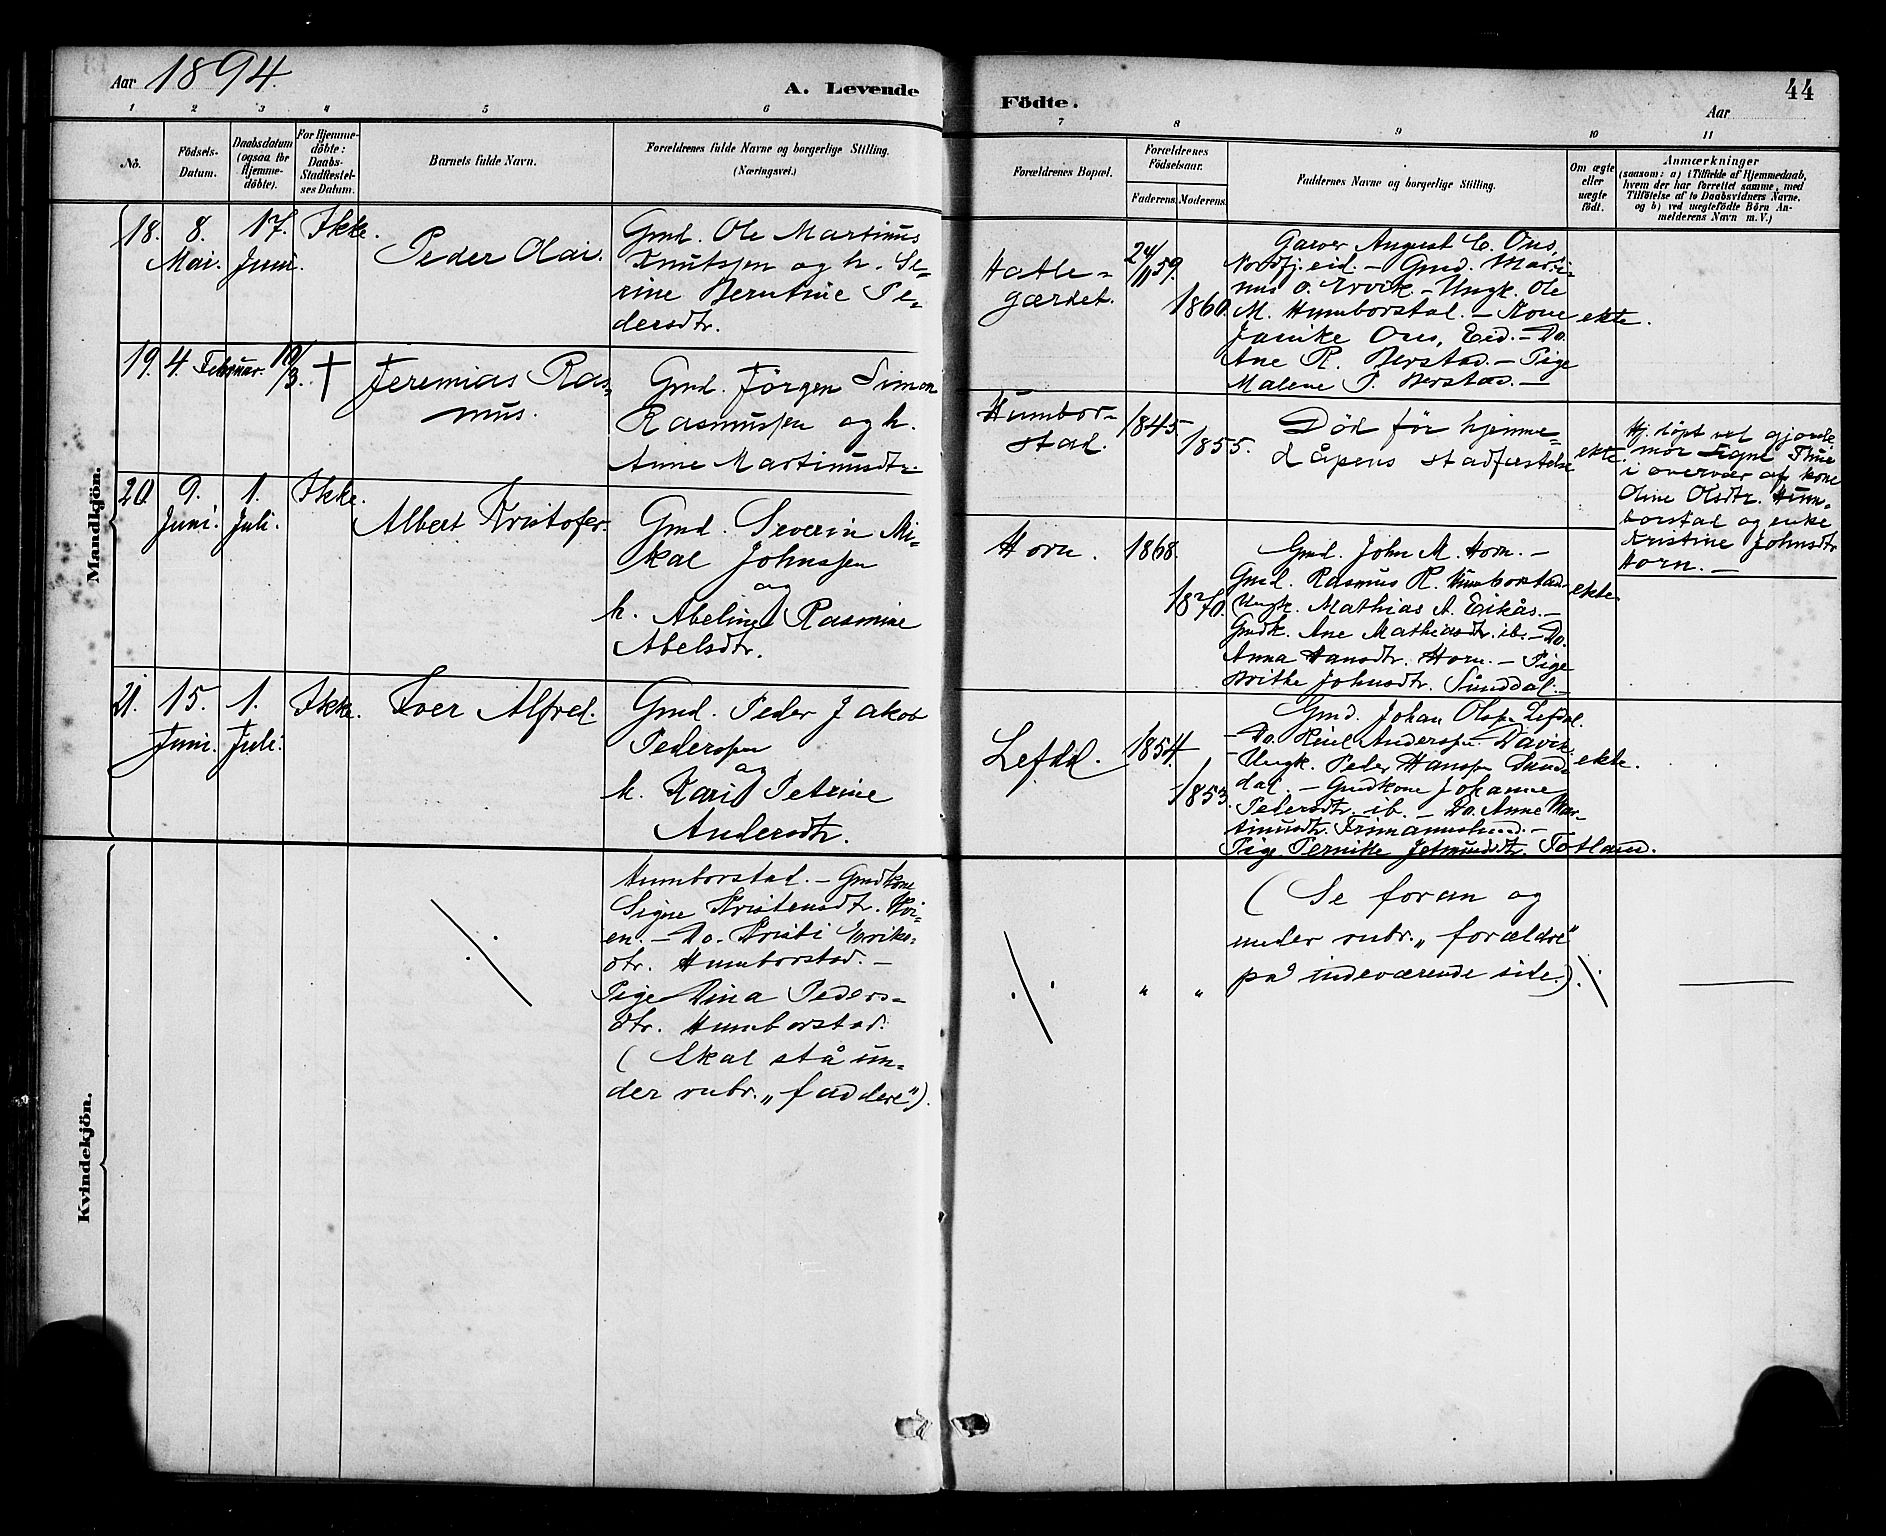 Aar 1894.
A. Levende
Födte.
Aar
44
1 2 3 4 5 6
7 8 9 10 11
No.
Födsels-
Datum.
Daabsdatum
(ogsaa for
Hjemme-
döbte).
For Hjemme-
döbte:
Daabs-
Stadfæstel-
ses Datum.
Barnets fulde Navn.
Forældrenes fulde Navne og borgerlige Stilling.
(Næringsvei.)
Forældrenes Bopæl.
Forældrenes
Födselsaar.
Faderens. Moderens.
Faddernes Navne og borgerlige Stilling.
Om ægte
eller
uægte
födt.
Anmærkninger
(saasom: a) i Tilfælde af Hjemmedaab,
hvem der har forrettet samme, med
Tilföielse af to Daabsvidners Navne,
og b) ved uægtefödte Börn An-
melderens Navn m. V.)
Mandkjön.
18.
8.
Mai.
17.
Juni.
Ikke.
Peder Olai.
Gmd. Ole Martinus
Knutssen og h. Se-
rine Berntine Pe-
dersdtr.
Hatle-
gærdet.
24/11 59.
1860.
Garver August C. Ous,
Nordfj.eid. - Gmd. Marti-
nus O. Ervik. - Ungk. Ole
M. Humborstad. - Kone
Janike Ous, Eid. - Do.
Ane R. Berstad. - Pige
Malene P. Berstad. -
ekte.
19.
4. Februar.
10/3.
†
Jeremias Ras-
mus.
Gmd. Jörgen Simon
Rasmussen og h.
Anne Martinusdtr.
Humbor-
stad.
1845
1855.
Död för hjemme-
dåpens stadfæstelse
ekte.
Hj. döpt ved gjorde-
mor Signe Thue
i overvær af kone
Oline Olsdtr. Hum-
borstad og enke
Kristine Johnsdtr.
Horn. -
20.
9.
Juni.
1.
Juli.
Ikke.
Albert Kristofer.
Gmd. Severin Mi-
kal Johnssen
og
h. Abeline Rasmine
Abelsdtr.
Horn.
1868.
1870.
Gmd. John M. Horn. -
Gmd. Rasmus R. Humborstad.
Ungk. Mathias A. Eikås. -
Gmdk. Ane Mathiasdtr. ib. - Do.
Anna Hansdtr. Horn. - Pige
Brithe Johnsdtr. Sunddal. -
ekte.
21.
15.
Juni.
1.
Juli.
Ikke.
Iver Alfred.
Gmd. Peder Jakob
Pederssen
og
h. Kari Petrine
Andersdtr.
Lefdal.
1854.
1853.
Gmd. Johan Olssen Lefdal.
- Do. Anderssen Davik.
- Ungk. Peder Hanssen Sund-
dal. - Gmdkone Johanne
Pedersdtr. ib. - Do. Anne Mar-
tinusdtr. Frimannslund. -
Pige Pernille Jetmundsdtr. Totland.
ekte.
Kvindekjön.
Humborstad. - Gmdkone
Signe Kristensdtr. Höi-
en. - Do. Kristi Eriks-
dtr. Humborstad. -
Pige Dina Peders-
dtr. Humborstad.
(Skal stå un-
der rubr. „faddere").
„ „
(Se foran og
under rubr. „forældre"
på indeværende side.)